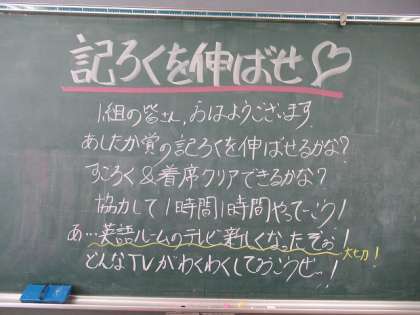 記ろくを伸ばせ♡
1組の皆さん、おはようございます
あしたか賞の記ろくを伸ばせるかな?
すころく&着席クリアできるかな?
協力して1時間1時間やってこう!
あ…英語ルームのテレビ新しくなったぞぉ!
大セカ!
どんなTVかわくわくしておこうぜ…!